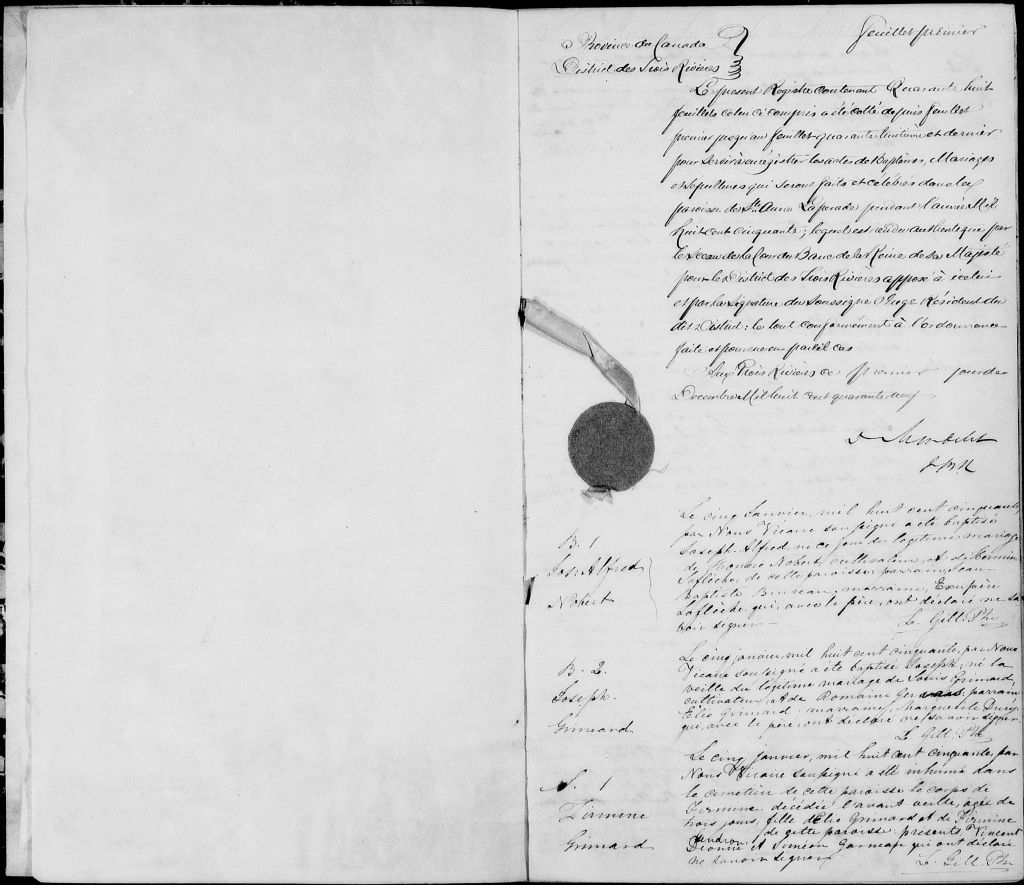 feuillet premier
Province du Canada
District des Trois Rivières
Le présent Registre contenant Quarante huit
feuillets celui ci compris a été cotté depuis feuillet
premier jusqu'au feuillet quarante huitième et dernier
pour servir à enrégistrer les actes de Baptêmes, Mariages
et Sépultures qui seront faits et célébrés dans la
paroisse de Ste Anne Laperade pendant l'année Mil
huit cent cinquante; lequel est rendu authentique par
le Sceau de la Cour du Banc de la Reine de sa Majesté
pour le District des Trois Rivières apposé à icelui
et par la signature du Soussigné Juge Résident du
dit District: le tout conformément à l'ordonnance
faite et pourvue en pareil cas
Aux Trois Rivières ce premier jour de
Décembre Mil huit cent quarante neuf
B. 1
Jos. Alfred
Nobert
Le cinq Janvier, mil huit cent cinquante
par Nous Vicaire soussigné a été baptisé
Joseph Alfred, né ce jour du légitime mariage
de Honoré Nobert, cultivateur, et de Hermine
Laflèche de cette paroisse: parrain, Jean
Baptiste Bruneau; marraine, Exupère
Laflèche qui, avec le père, ont déclaré ne sa
voir signer
L. Gill. Ptre
B. 2.
Joseph.
Grimard
Le cinq janvier, mil huit cent cinquante, par Nous
Vicaire soussigné a été baptisé Joseph, né la
veille du légitime mariage de Louis Grimard,
cultivateur, et de Romaine Gervais: parrain,
Elie Grimard: marraine, Marguerite
qui, avec le père, ont déclaré ne savoir signer.
L. Gill. Ptre
S. 1
Firmine
Grimard
Le cinq janvier, mil huit cent cinquante, par
Nous Vicaire soussigné a été inhumé dans
le cimetière de cette paroisse le corps de
Firmine, décédée l'avant veille, agée de
trois jours, fille d'Elie Grimard et de Firmine
Gendron de cette paroisse: présents Vincent
Dionne et Siméon Garneau qui ont déclaré
ne savoir signer
L. Gill. Ptre